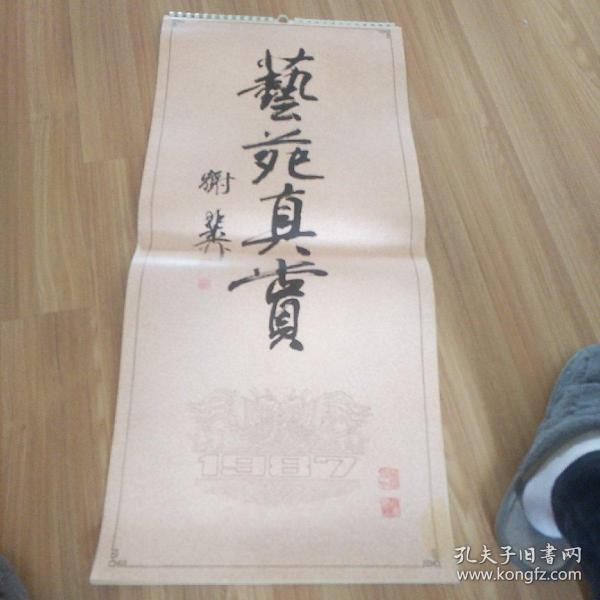 藝苑真賞
1987
孔夫子旧書网
www.kongfz.com